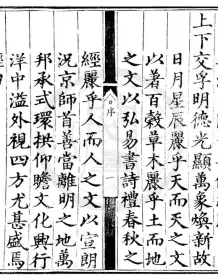 上下交孚明德光顯萬象煥新故
日月星辰麗乎天而天之文
以著百穀草木麗乎土而地
之文以弘易書詩禮春秋之
序
經麗乎人而人之文以宣朗
況京師首善當離明之地萬
邦承式環拱仰瞻文化興行
洋中溢外視四方尤甚盛焉